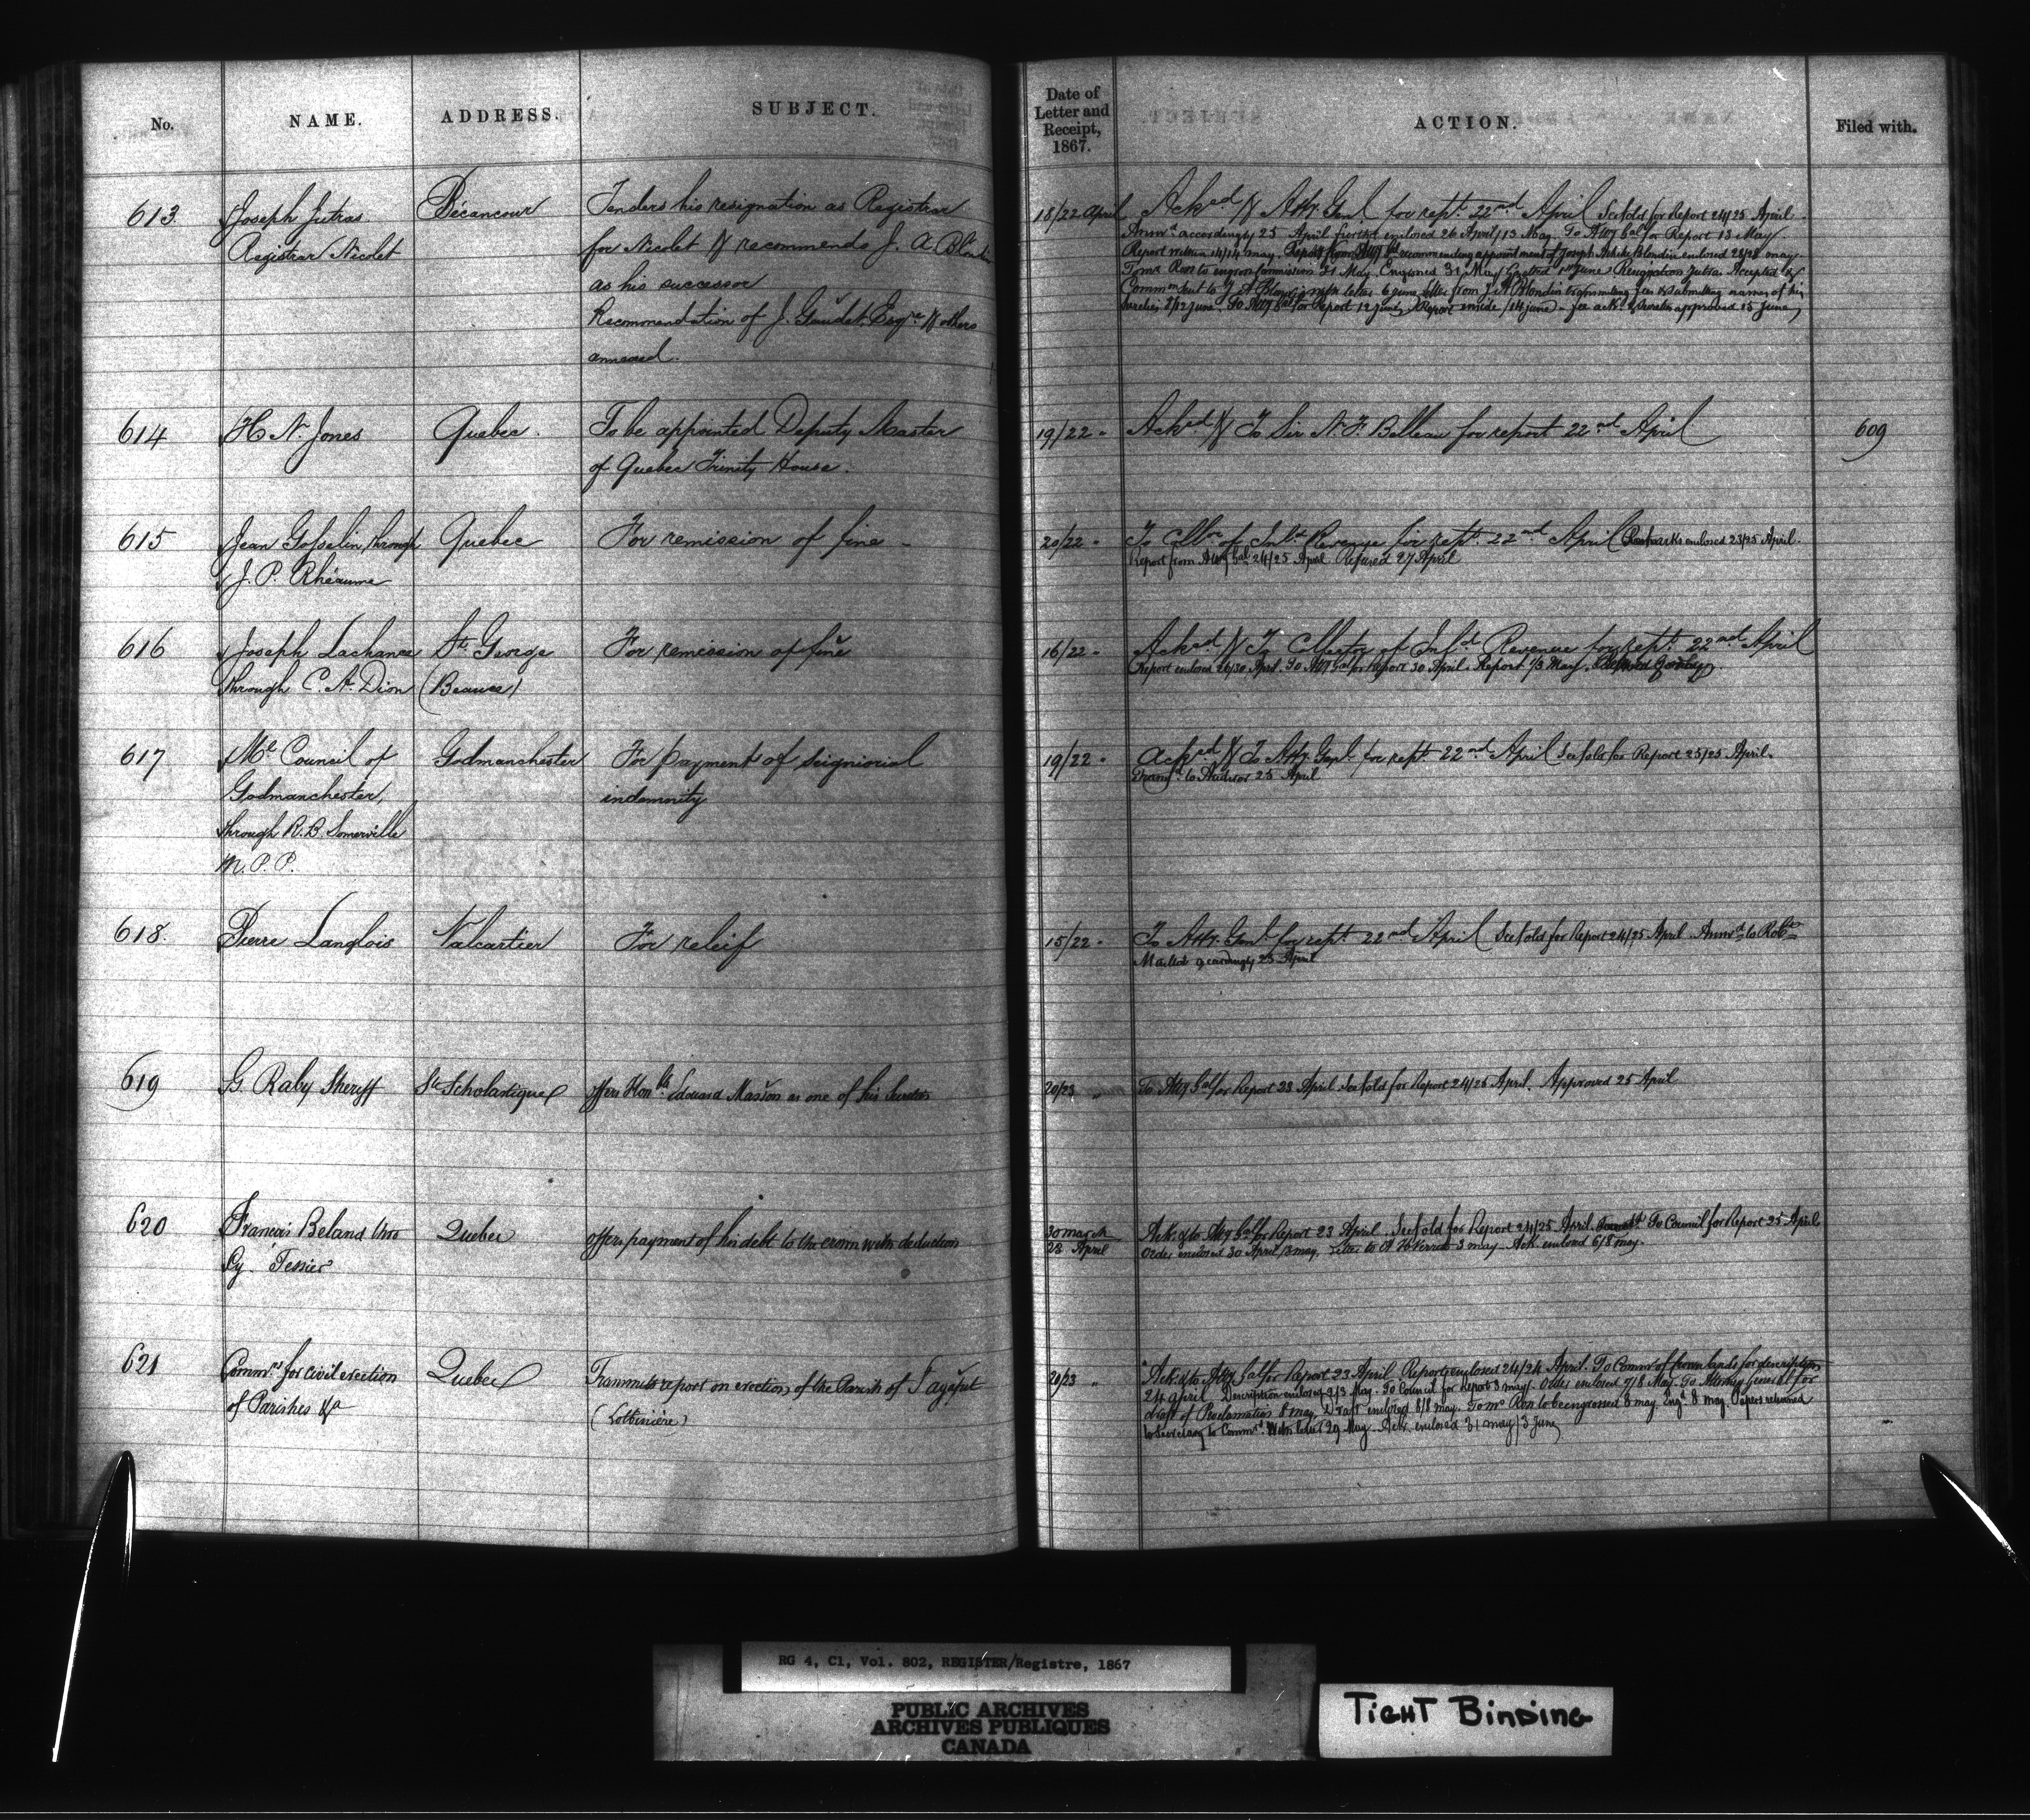 No. NAME. ADDRESS. SUBJECT.
Date of Letter and Receipt, 1867. ACTION. Filed with.
613 Joseph Jutras Bécancour Tenders his resignation as Registrar
Registrar Nicolet for Nicolet & recommends J. A. Blondin
as his successor
Recommendation of J. Gaudet Esqre & others
annexed.
18/22 April Acked & Atty. Genl. for rept. 22nd April See fold for Report 24/25 April.
Answd. accordingly 25 April further enclosed 26 April/13 May. To Atty Gal for Report 13 May.
Report within 14/14 may. Report from Atty Gal recommending appointment of Joseph Blondin enclosed 28/28 may.
To Mr Ross to engross Commission 31 May. Engrossed 31 May 1st June Resignation Jutras Accepted &
Commn sent to J A Blondin with letter 6 June letter from J A Blondin transmitting fees & submitting names of his
sureties 8/12 June. To Atty Gal for Report 12 June Report inside /14 June - fee ackd & sureties approved 15 June
614 H. N. Jones Quebec. To be appointed Deputy Master
of Quebec Trinity House.
19/22 " Acked & To Sir N. F. Belleau for report 22nd April 609
615 Jean Gosselin, through Quebec For remission of fine -
J. P. Rhéaume
20/22 " To Collr of Inld Revenue for rept. 22nd April Remarks enclosed 23/25 April.
Report from Atty Gal 24/25 April Refused 27 April
616 Joseph Lachance St. George For remission of fine
through C. A. Dion (Beauce)
16/22 " Ackd. & To Collector of Inld. Revenue for rept. 22nd April
Report enclosed 26/30 April. To Atty Gal for Report 30 April. Report 1/3 May.
617 Ml Council of Godmanchester For payment of seigniorial
Godmanchester, indemnity
through R. B. Somerville
M. P. P.
19/22 " Acked & To Atty. Genl. for rept. 22nd April See fold for Report 25/25 April.
Transfd. to Auditor 25 April
618. Pierre Langlois Valcartier For releif
15/22 " To Atty. Genl. for rept. 22nd April See fold for Report 24/25 April Answd to Robt
25 April
619 G. Raby Sheriff Ste Scholastique offers Honble Edouard Masson as one of his Sureties
20/23 " To Atty Gal for Report 23 April See fold for Report 24/25 April. Approved 25 April
620 Francois Beland thro Quebec offers payment of his debt to the crown with deduction
Cy. Tessier
30 march
23 April Ack & to Atty Gal for Report 23 April. See fold for Report 24/25 April. To Council for Report 25 April
Order enclosed 30 April/3 may. Letter to 3 may. Ack. enclosed 6/8 may.
621 Commrs for civil erection Quebec Transmits report on erection of the Parish of
of Parishes &a (Lotbinière)
20/23 " Ack & to Atty Gal for Report 23 April Report enclosed 24/24 April. To Commr of Crown lands for description
24 April Description enclosed 2/3 May. To Council for Report 3 may. Order enclosed 7/8 May. To Attorney General for
draft of Proclamation 8 may. Draft enclosed 8/8 may. To Mr Ross to be engrossed 8 may. Engd. 8 may. Papers returned
to Secretary to Commrs. With letter 29 May. Ack. enclosed 31 may/3 June
RG 4, C1, Vol. 802, REGISTER/Registre, 1867
PUBLIC ARCHIVES
ARCHIVES PUBLIQUES
CANADA
TIGHT BINDING